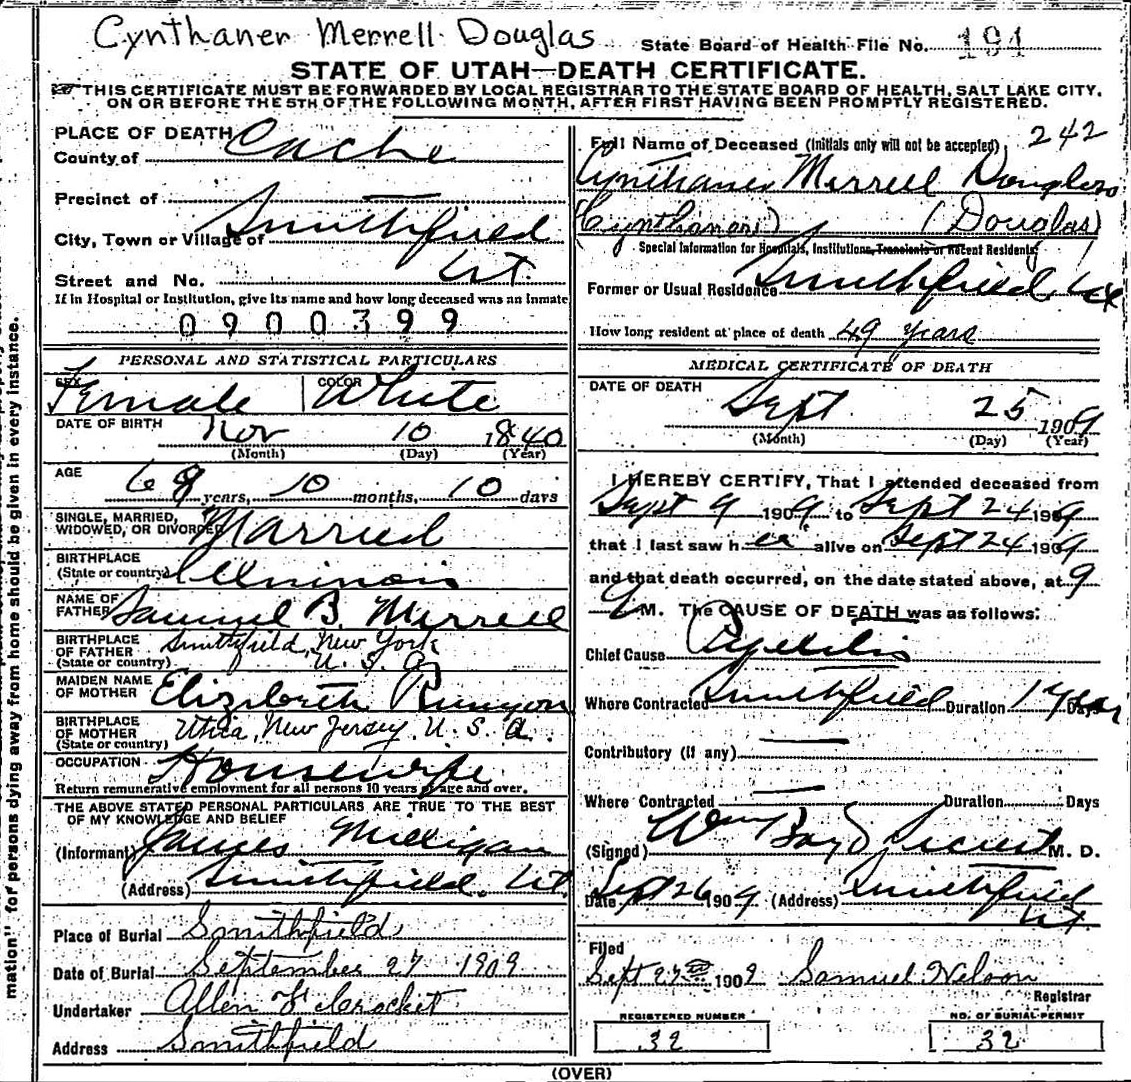 Cynthaner Merrell Douglas State Board of Health File No. 191
STATE OF UTAH—DEATH CERTIFICATE.
THIS CERTIFICATE MUST BE FORWARDED BY LOCAL REGISTRAR TO THE STATE BOARD OF HEALTH, SALT LAKE CITY,
ON OR BEFORE THE 5TH OF THE FOLLOWING MONTH, AFTER FIRST HAVING BEEN PROMPTLY REGISTERED.
PLACE OF DEATH
County of Cache
Precinct of
City, Town or Village of Smithfield
Street and No. Ut.
If in Hospital or Institution, give its name and how long deceased was an inmate
0900399
PERSONAL AND STATISTICAL PARTICULARS
SEX Female COLOR White
DATE OF BIRTH Nov 10 1840
(Month) (Day) (Year)
AGE 68 years, 10 months, 10 days
SINGLE, MARRIED,
WIDOWED, OR DIVORCED Married
BIRTHPLACE
(State or country) Illinois
NAME OF
FATHER Samuel B. Merrell
BIRTHPLACE
OF FATHER Smithfield, New York
(State or country) U. S. A
MAIDEN NAME
OF MOTHER Elizabeth Runyon
BIRTHPLACE
OF MOTHER Utica, New Jersey, U. S. A.
(State or country)
OCCUPATION Housewife
Return remunerative employment for all persons 10 years of age and over.
THE ABOVE STATED PERSONAL PARTICULARS ARE TRUE TO THE BEST
OF MY KNOWLEDGE AND BELIEF
(Informant) James Milligan
(Address) Smithfield. Ut.
Place of Burial Smithfield
Date of Burial September 27 1909
Undertaker Allen & Crocket
Address Smithfield
242
Full Name of Deceased (Initials only will not be accepted)
Cynthaner Merrell Douglass
(Cynthaner) (Douglas)
Special Information for Hospitals, Institutions, Transients or Recent Residents
Former or Usual Residence Smithfield Ut
How long resident at place of death 49 years
MEDICAL CERTIFICATE OF DEATH
DATE OF DEATH
Sept 25 1909
(Month) (Day) (Year)
I HEREBY CERTIFY, That I attended deceased from
Sept 9 1909, to Sept 24 1909
that I last saw her alive on Sept 24 1909
and that death occurred, on the date stated above, at 9
M. The CAUSE OF DEATH was as follows:
Chief Cause
Where Contracted Smithfield Duration 1 year Days
Contributory (if any)
Where Contracted Duration Days
(Signed) Wm Boyd M. D.
Date Sept 26 1909 (Address) Smithfield
Ut.
Filed
Sept 27th 1909 Samuel Nelson
Registrar
REGISTERED NUMBER
32
NO. OF BURIAL PERMIT
32
(OVER)
mation" for persons dying away from home should be given in every instance.